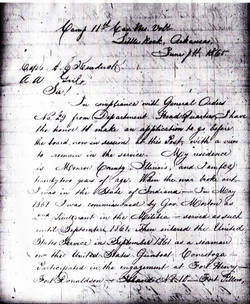 Camp 11th Cav. Mo. Vols
Little Rock, Arkansas
June 7th 1865
Capt. A. C. Kendrick
A A Genl
Sir!
In compliance with General Orders
No 29 from Department Head Quarters I have
the honor to make an application to go before
the board, now in session at this Post, with a view
to remain in the service. My residence
is Monroe County, Illinois, and I am
years of age. When the war broke out,
I was in the State of Indiana. In May
1861 I was commissioned by Gov. Morton as
2nd Lieutenant in the Militia - served as such
until September 1861. Then entered the United
States Service in September 1861 as a seaman
on the United States Gunboat Conestoga -
Participated in the engagement at Fort Henry -
Fort Donaldson - Island No 10 - Fort Pillow